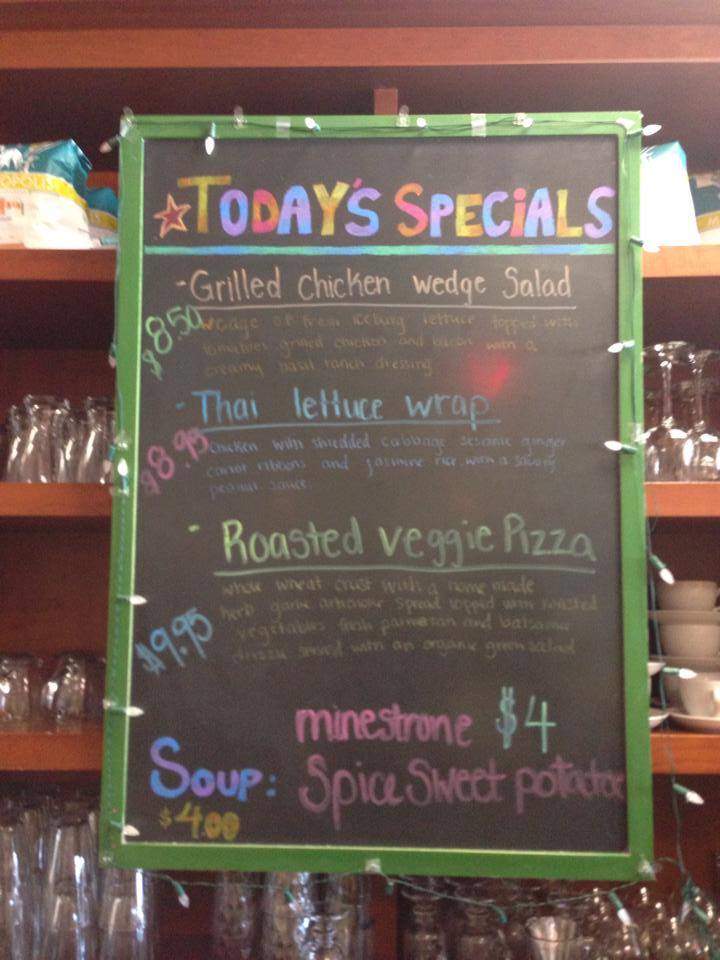 TODAY'S SPECiALS
-Grilled Chicken wedge Salad
$8.50
of fresh iceburg lettuce topped with
tomatoes grilled chicken and bacon with a
creamy basil ranch dressing
- Thai lettuce wrap
$8.95
Chicken with shredded cabbage sesame ginger
carrot ribbons and jasmine rice with a savory
peanut sauce
- Roasted veggie Pizza
$9.95
whole wheat crust with a home made
herb garlic artichoke spread topped with roasted
vegetables fresh parmesan and balsamic
drizzle served with an organic green salad
minestrone $4
Soup: Spice Sweet potatoe
$4.00
OPOLIS